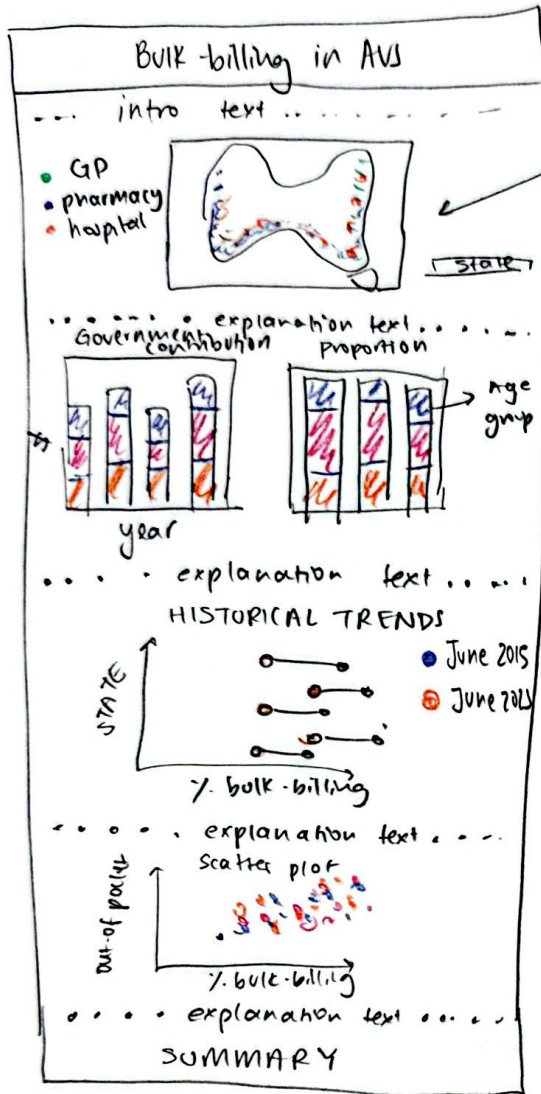 Bulk-billing in AUS
.... intro text ..........
GP
pharmacy
hospital
state
....... explanation text .......
Government contribution
Proportion
Age group
year
..... explanation text .....
HISTORICAL TRENDS
STATE
June 2015
June
% bulk-billing
...... explanation text ....
scatter plot
out-of pocket
% bulk-billing
..... explanation text .....
SUMMARY